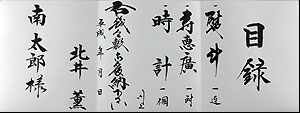 目録
熨斗 一連
寿恵廣 一対
時計 一個
以上
右幾久敷御受納下さい
平成 年 月 日
北井 薫
南太郎様